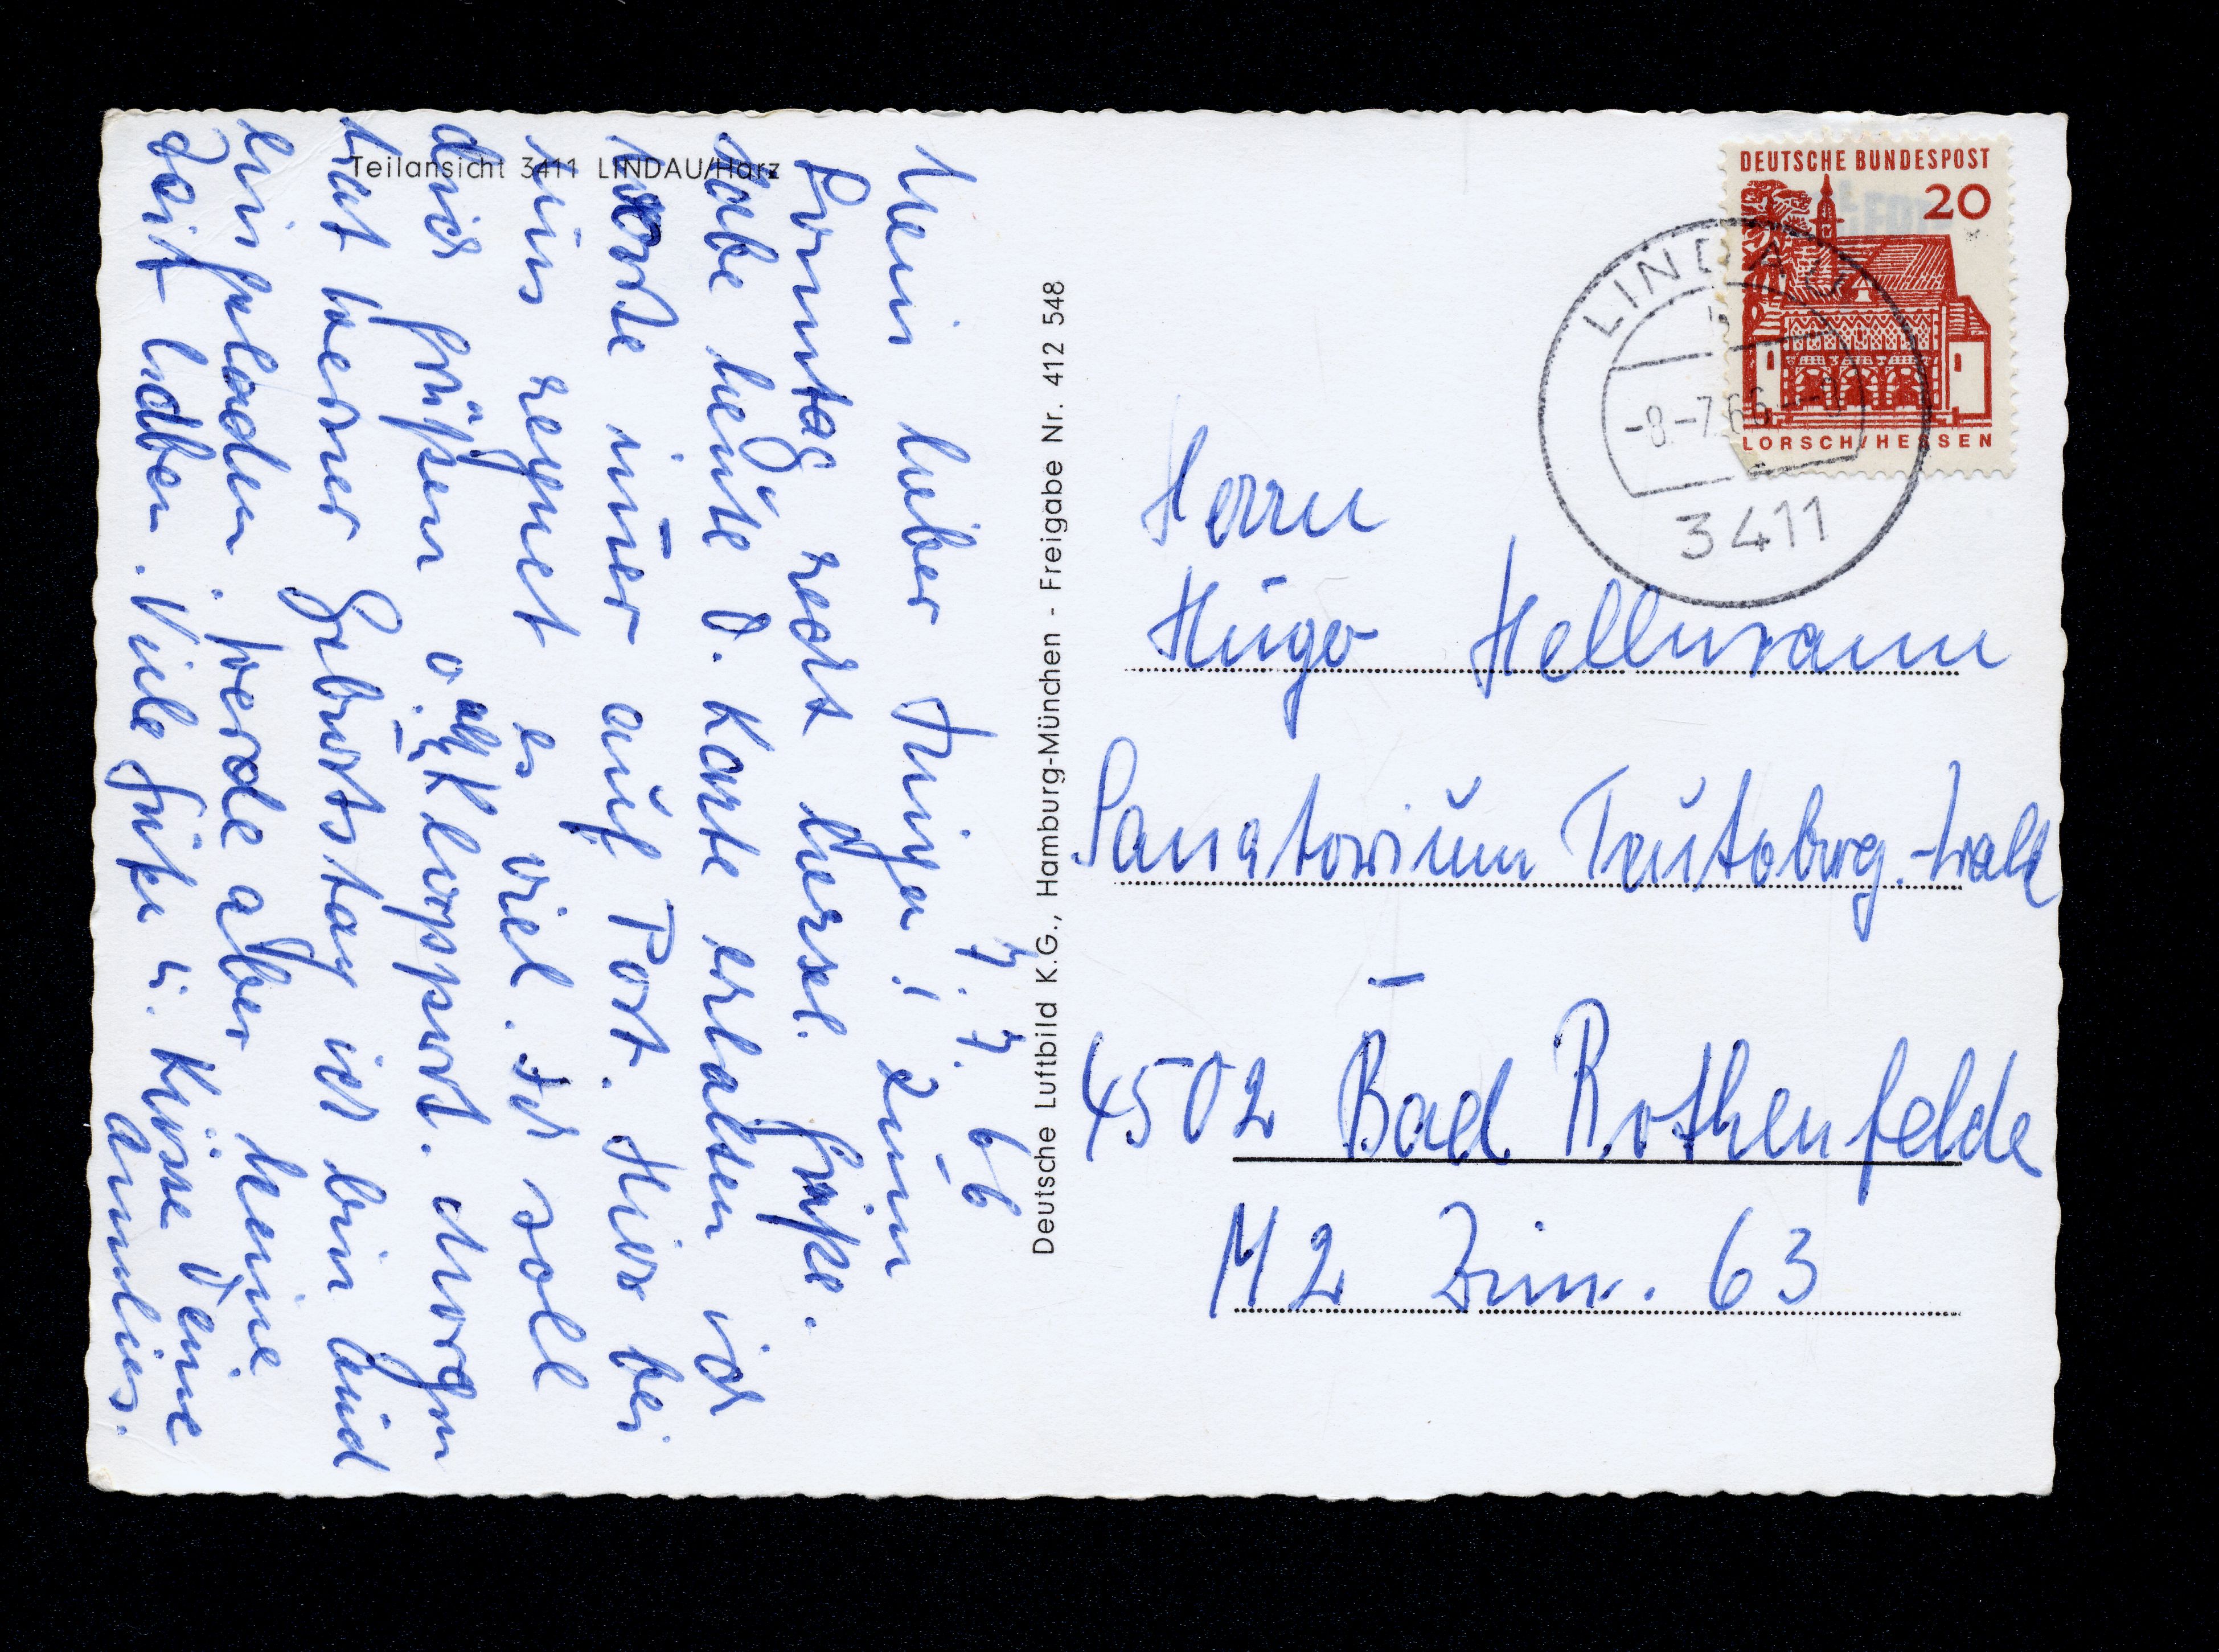 Teilansicht 3411 LINDAU/Harz
7. 7. 66
Mein lieber Hugo! Zum
Sonntag recht herzl. Grüße.
Habe heute D. Karte erhalten ich
warte immer auf Post. Hier bei
uns regnet es viel. Ich soll
dich grüßen von Kloppert. Morgen
hat Werner Geburtstag ich bin auch
eingeladen. werde aber keine
Zeit haben. Viele Grüße u. Küsse Deine
Annelies.
Deutsche Luftbild K.G., Hamburg-München - Freigabe Nr. 412 548
DEUTSCHE BUNDESPOST
20
LORSCH/HESSEN
LINDAU
-8.-7.66
3411
Herrn
Hugo Hellmann
Sanatorium Teutoburg.-Wald
4502 Bad Rothenfelde
M2 Zim. 63